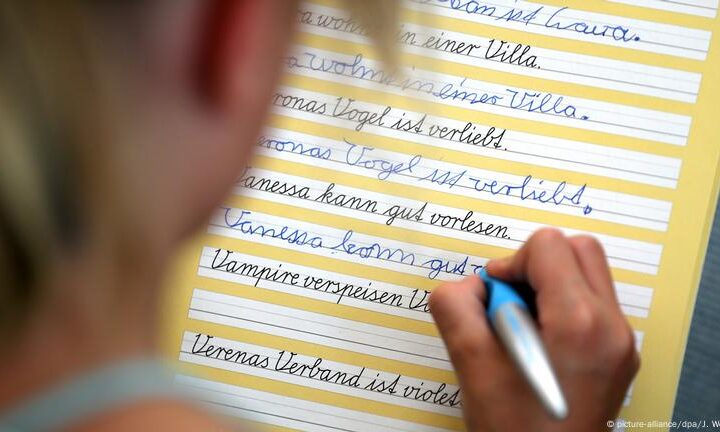 ist Lava.
wohnt in einer Villa.
wohnt in einer Villa.
Vogel ist verliebt.
Vogel ist verliebt.
Vanessa kann gut vorlesen.
Vanessa kann gut
Vampire verspeisen
Verenas Verband ist violett
© picture-alliance/dpa/J. W